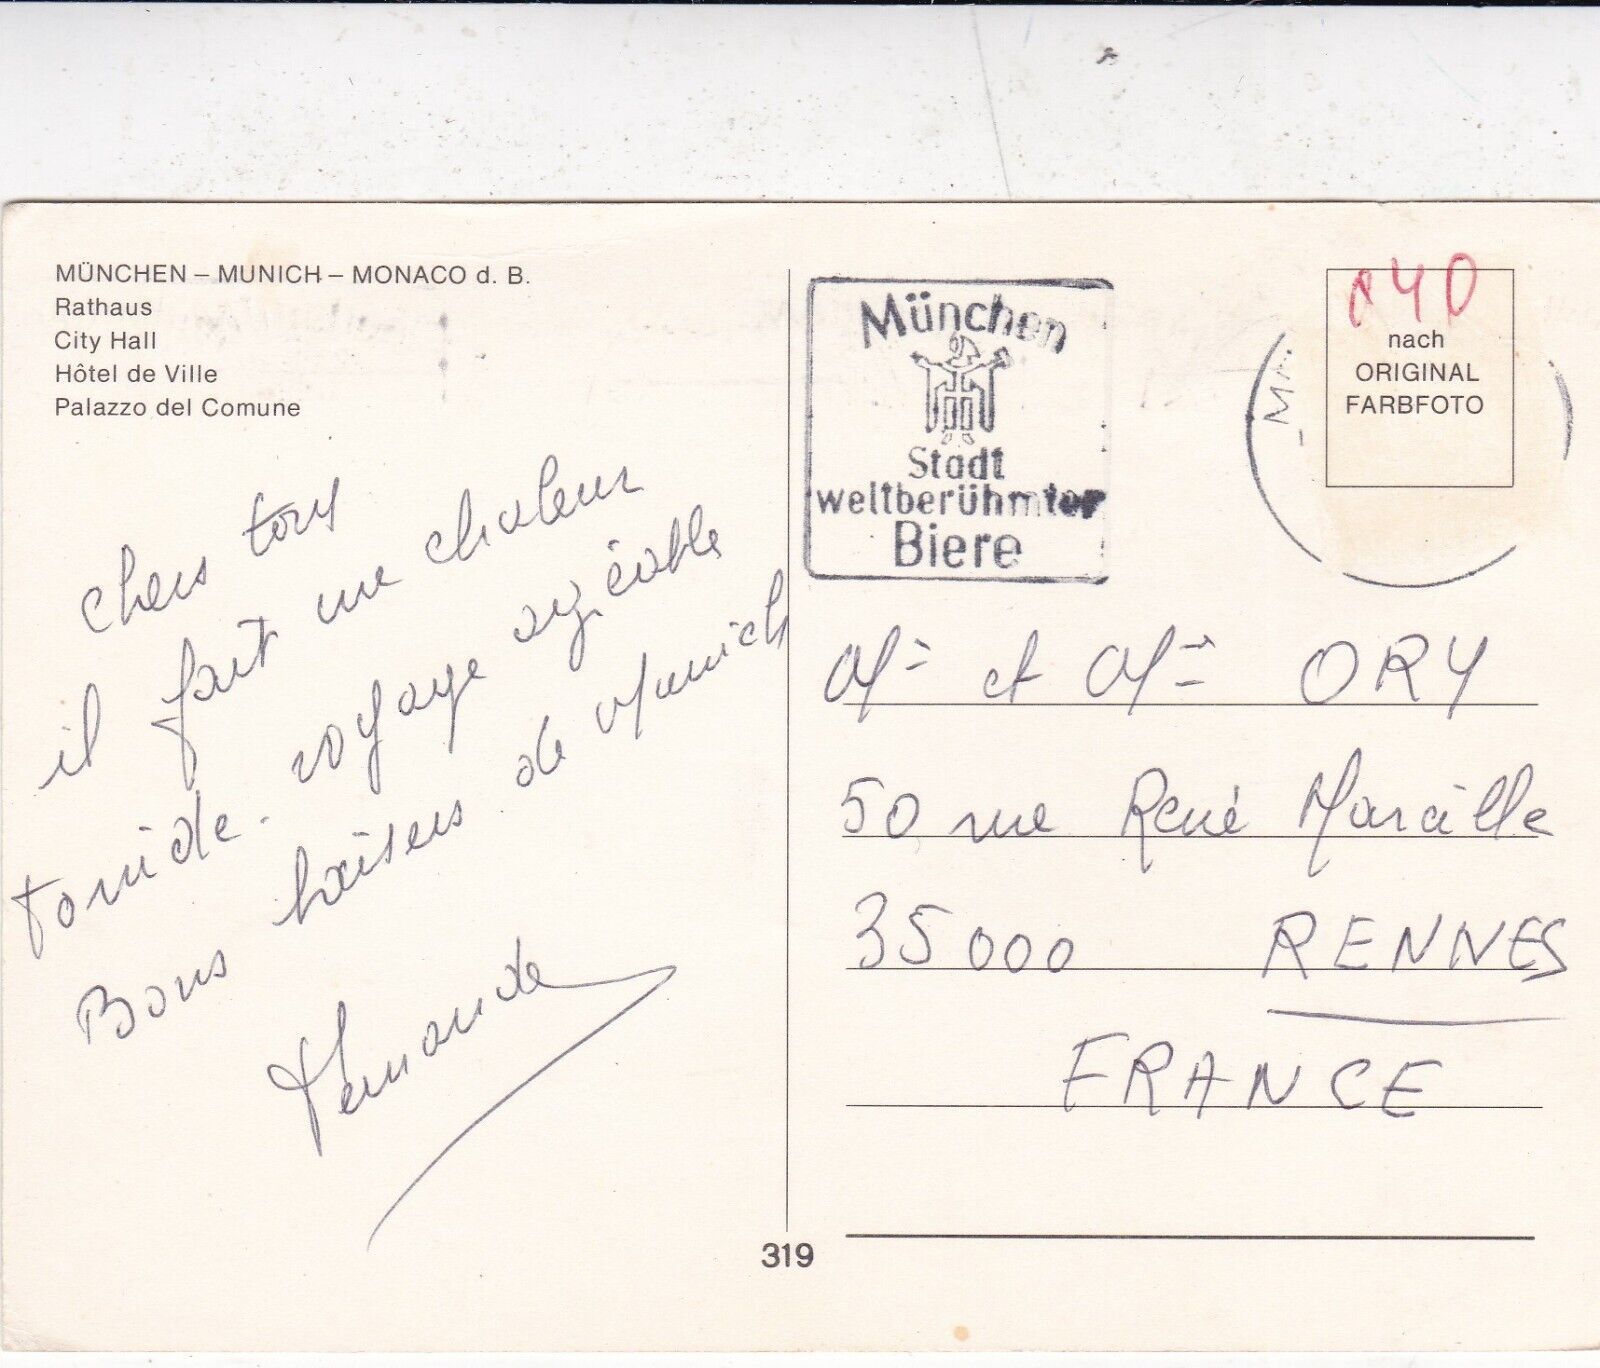 MÜNCHEN – MUNICH – MONACO d. B.
Rathaus
City Hall
Hôtel de Ville
Palazzo del Comune
chers tous
il fait une chaleur
torride. voyage agréable
Bons baisers de Munich
Fernande
München
Stadt
weltberühmter
Biere
40
nach
ORIGINAL
FARBFOTO
Mr et Mme ORY
50 rue René Marcille
35000 RENNES
FRANCE
319